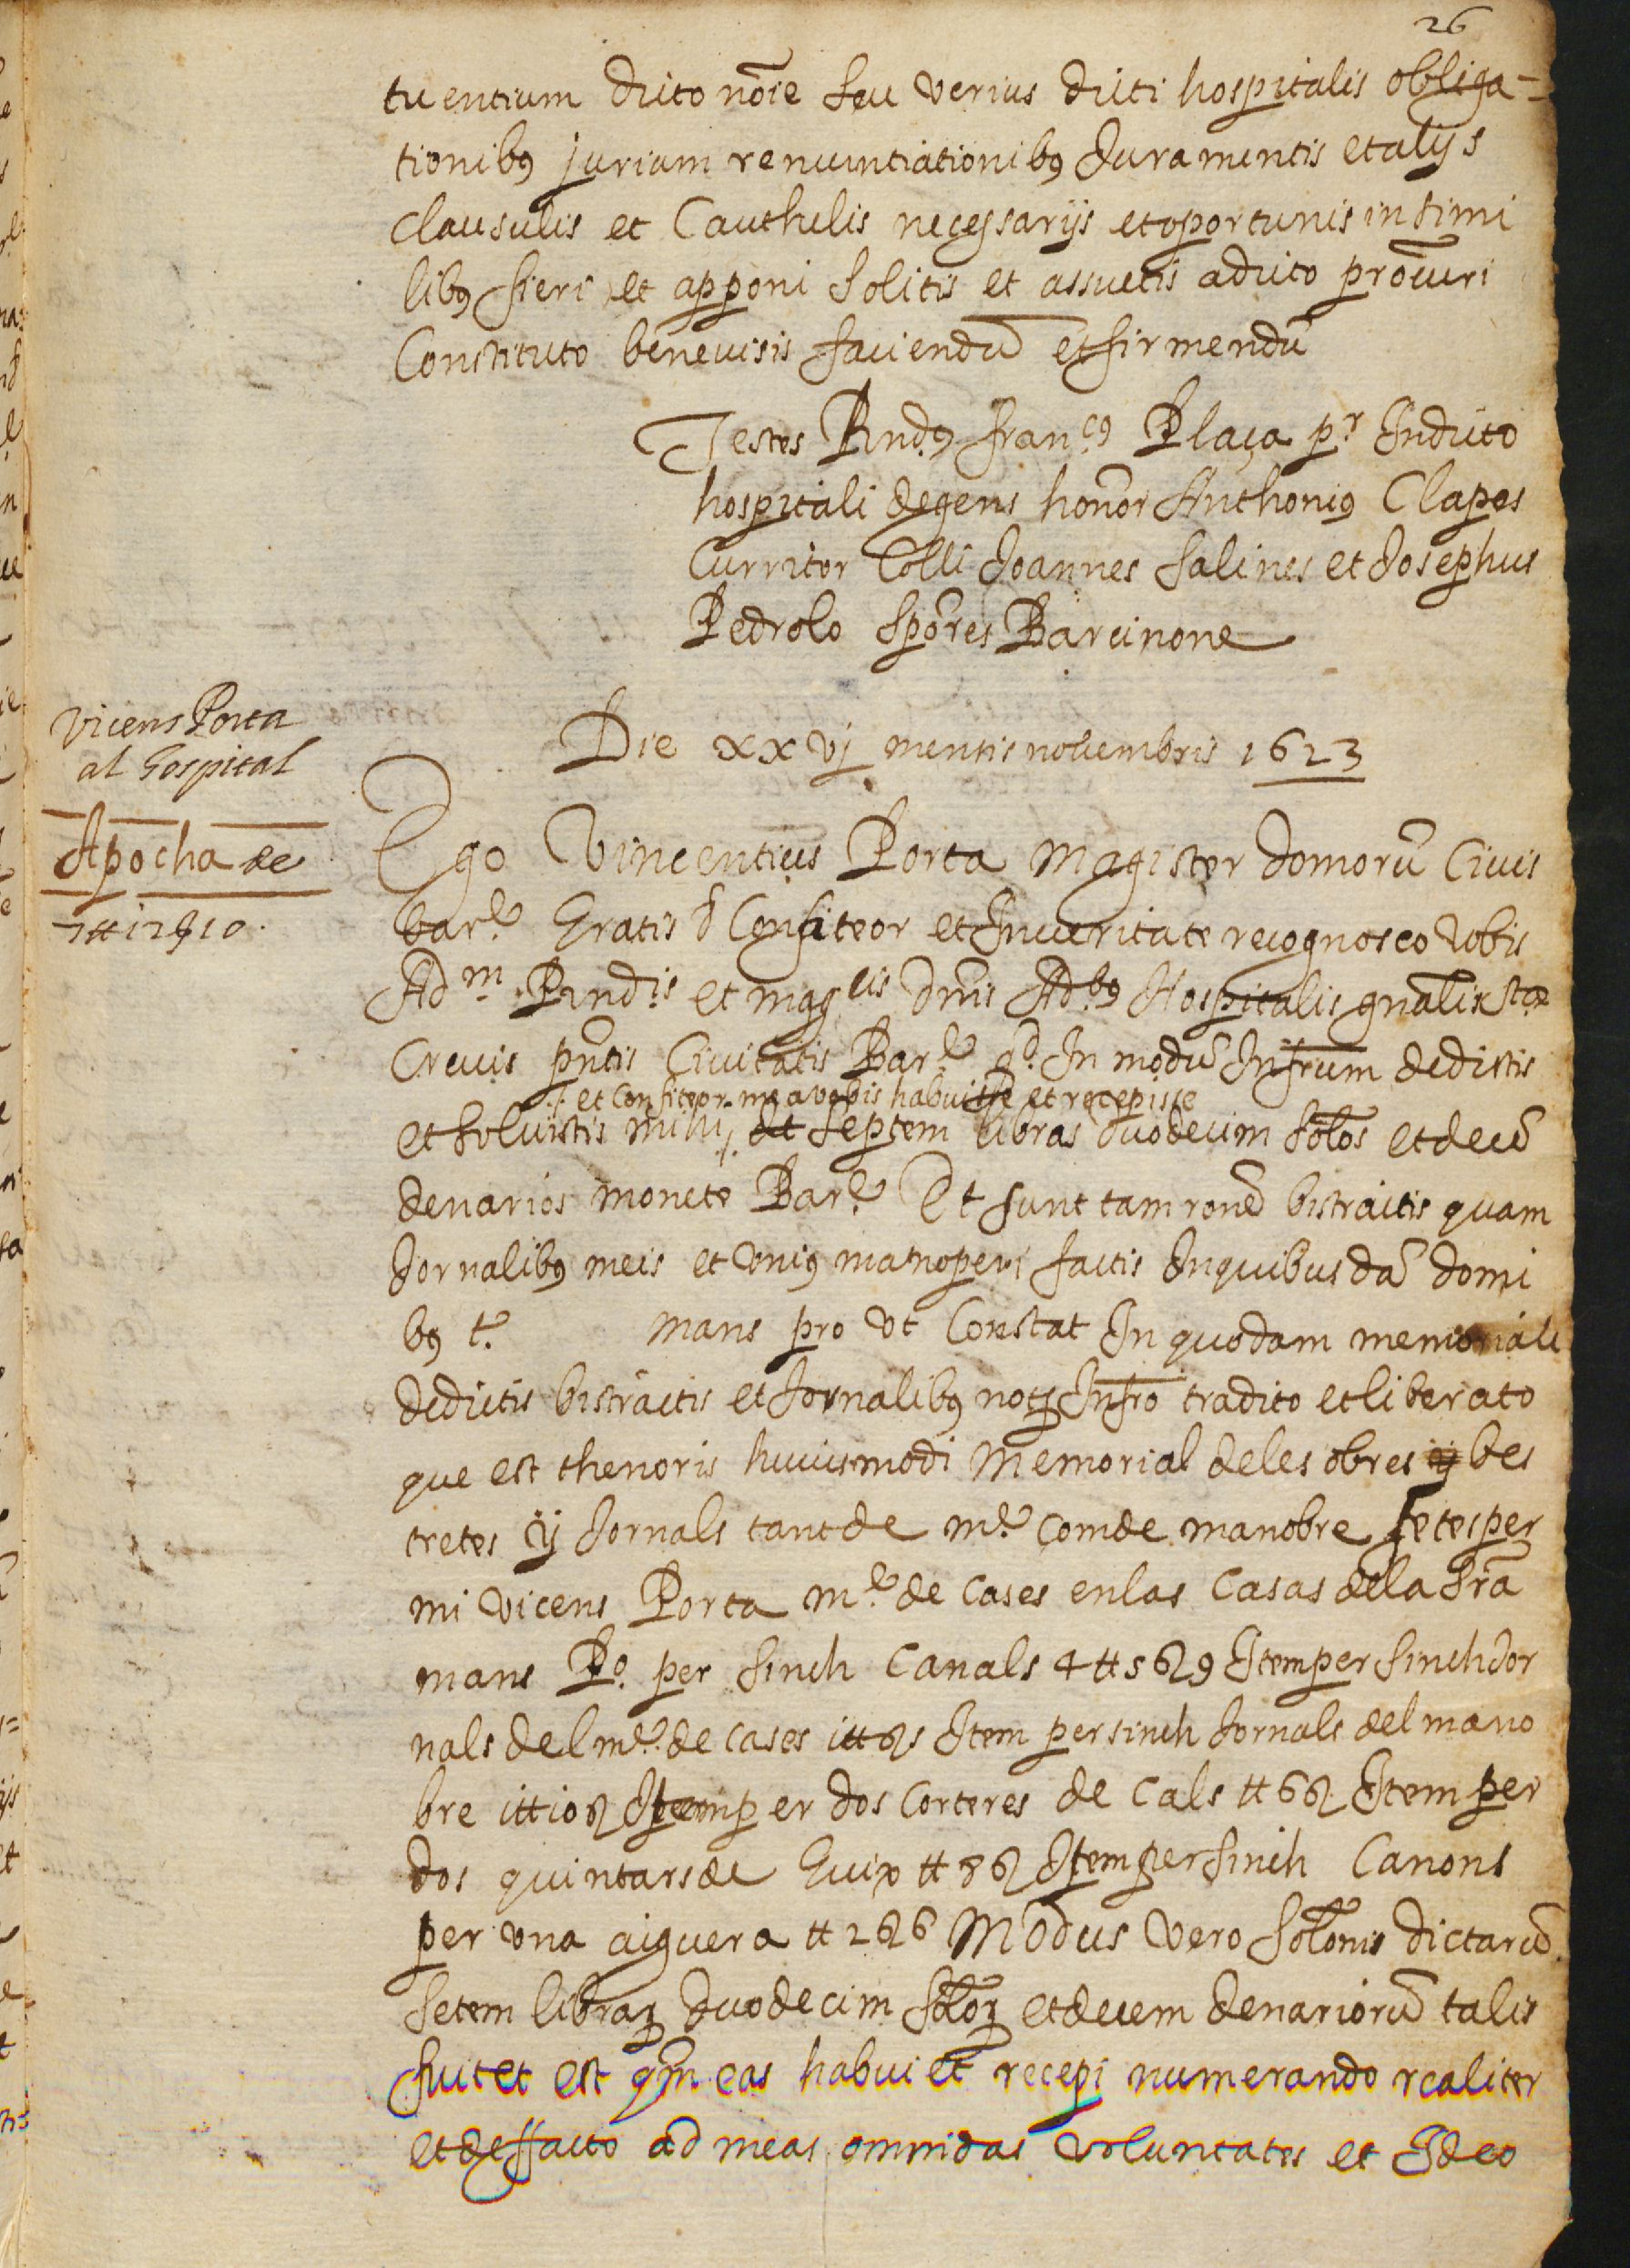 26
tuentium dicto nõie seu verius dicti hospitalis obliga-
tionibꝰ jurium renuntiationibꝰ Juramentis et alijs
clausulis et Cauthelis necessarijs et oportunis in simi
libꝰ fieri et apponi solitis et assuetis a dicto procuri
Constituto benevisis faciendũ et firmendũ
Testes Rndꝰ Franᶜꝰ Plaça pr In dicto
hospitali degens honor Anthoniꝰ Clapes
Curritor Colli Joannes Salines et Josephus
Pedrolo Spores Barcinone
Vicens Porta
al Hospital
Apocha de
7 ₶ 12 ẞ 10.
Die xxvj mensis novembris 1623
Ego Vincentius Porta Magister domorũ Civis
barᵉ Gratis & Confiteor et In veritate recognosco vobis
Adm. Rndis et magcis Dnis Adbꝰ Hospitalis gnalis Stæ
Crucis pntis Civitatis Barᵉ qd. In modũ Infrum dedistis
./. et Confiteor me a vobis habuisse et recepisse
et solvistis mihi ./. septem libras duodecim solos et decẽ
denarios monete Barᵉ Et sunt tam rone bistractis quam
Jornalibꝰ meis et vniꝰ manoperi factis In quibusdã domi
bꝰ t. mans pro vt Constat In quodam memoriali
dedictis bistractis et Jornalibꝰ notꝫ Infro tradito et liberato
que est thenoris huiusmodi Memorial de les obres bes
tretes ÿ Jornals tant de mᵉ. com de manobre fetes per
mi Vicens Porta mᵉ. de cases en las Casas de la Sra
mans Pº. per sinch Canals 4 ₶ 5 ẞ 9 Item per sinch Jor
nals del mᵉ. de cases 1 ₶ ẞ Item per sinch Jornals del mano
bre 1 ₶ 10 ẞ Item per dos corteres de Cals ₶ 6 ẞ Item per
dos quintars de Guix ₶ 8 ẞ Item per sinch Canons
per vna aiguera ₶ 2 ẞ 6 Modus vero solonis dictarũ
Setem libraꝝ duodecim soloꝝ et decem denariorũ talis
fuit et est qm eas habui et recepi numerando realiter
et de facto ad meas omnidas voluntates et Ideo